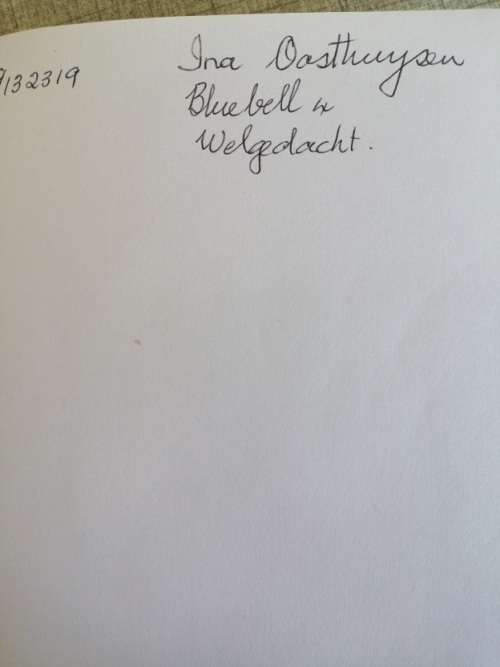 Ina Oosthuysen
/132319
Bluebell &
Welgedacht.